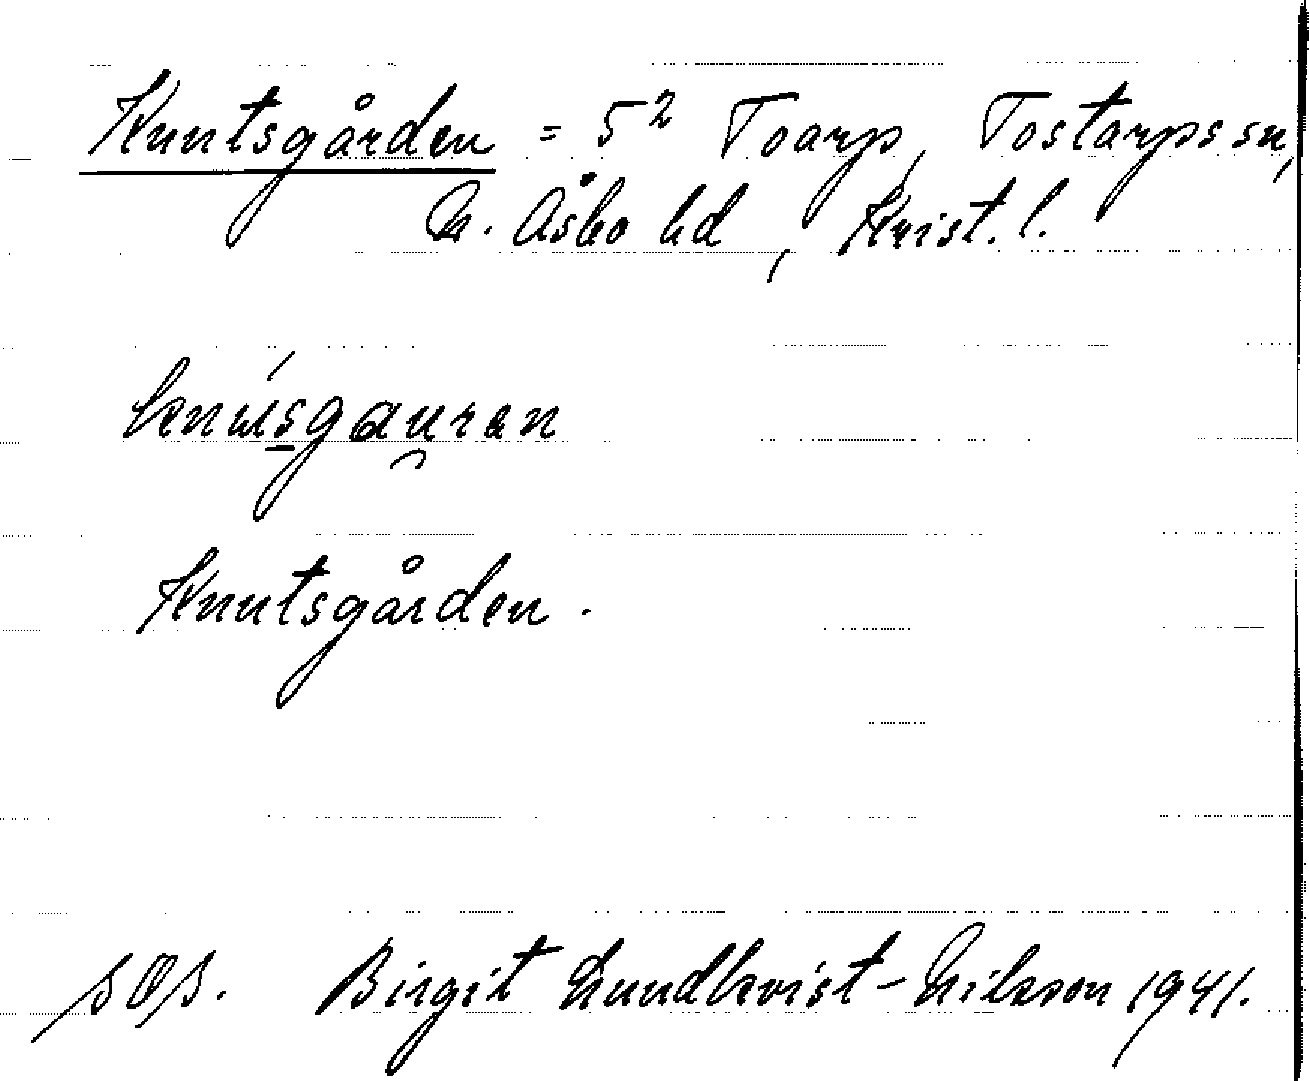 Knutsgården = 5² Toarp, Tostarps sn,
N. Åsbo hd, Krist. l.
knúsgau̯ran
Knutsgården.
Birgit Lundkvist-Nilsson 1941.